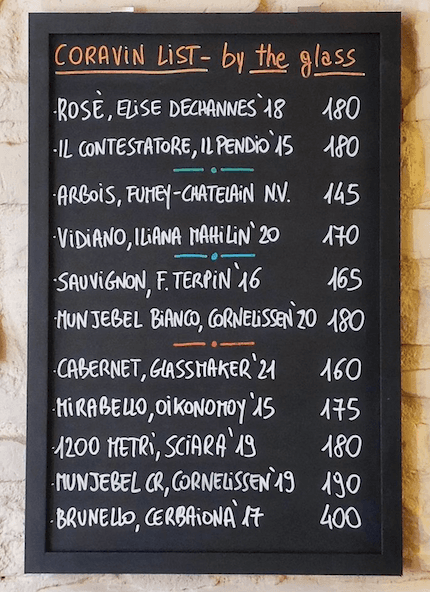 CORAVIN LIST - by the glass
·ROSÈ, ELISE DECHANNES'18 180
·IL CONTESTATORE, IL PENDIO'15 180
·ARBOIS, FUMEY-CHATELAIN N.V. 145
·VIDIANO, ILIANA MAHILIN'20 170
·SAUVIGNON, F. TERPIN'16 165
·MUNJEBEL BIANCO, CORNELISSEN'20 180
·CABERNET, GLASSMAKER'21 160
·MIRABELLO, OIKONOMOY'15 175
·1200 METRI, SCIARA'19 180
·MUNJEBEL CR, CORNELISSEN'19 190
·BRUNELLO, CERBAIONA'17 400